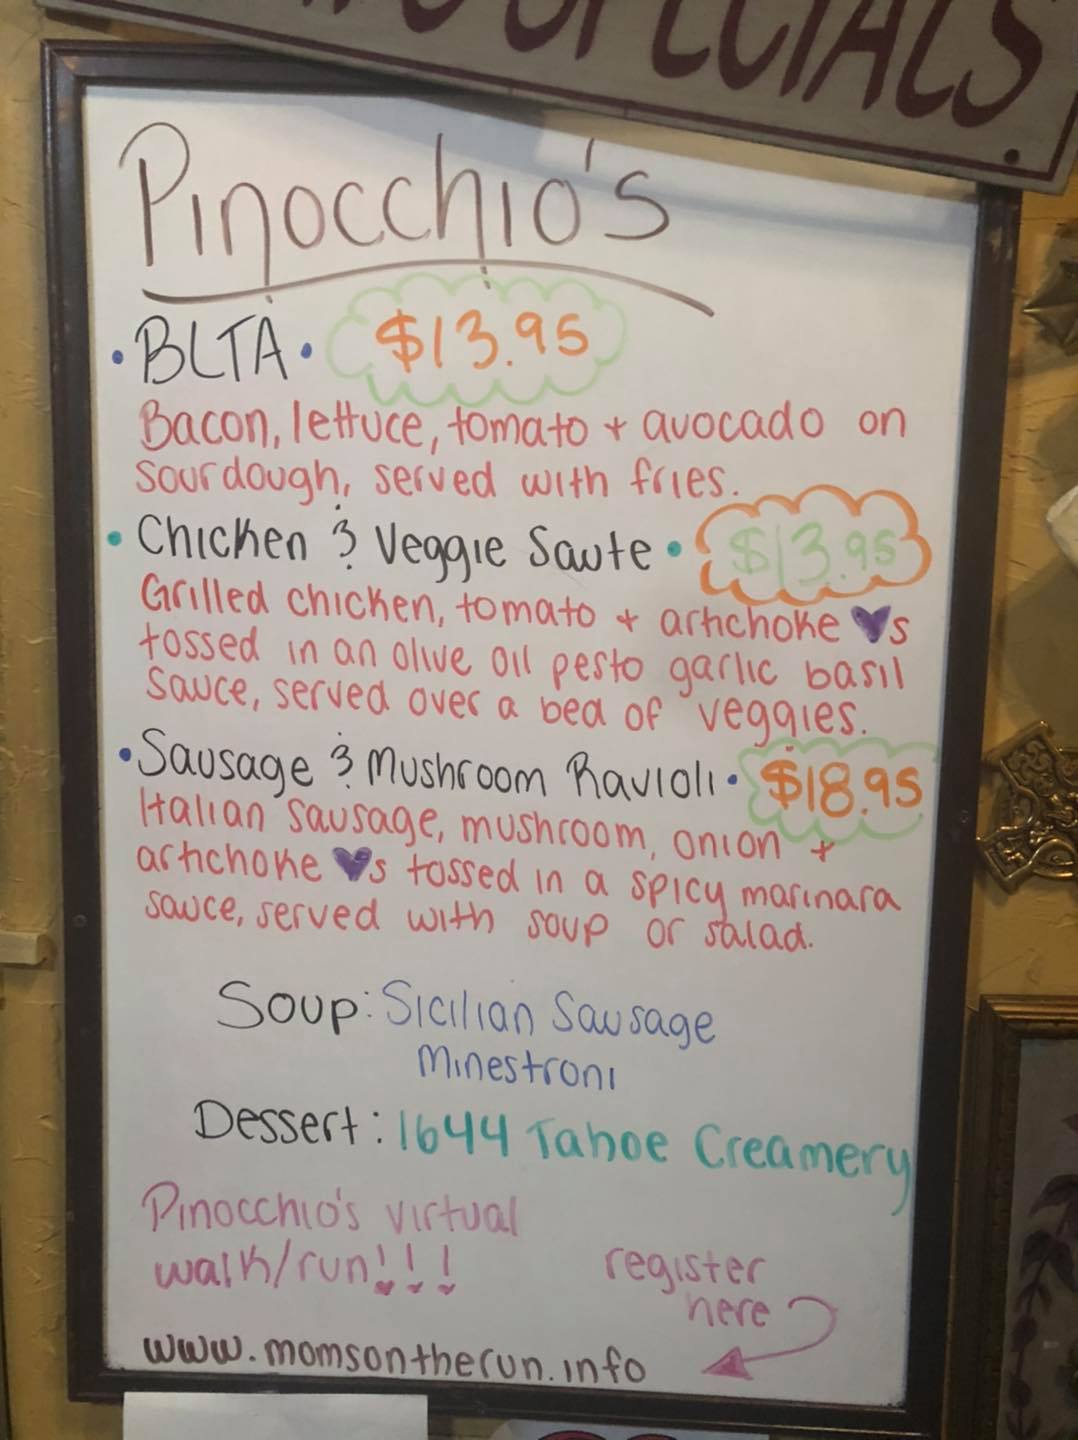 SPECIALS
Pinocchio's
• BLTA • $13.95
Bacon, lettuce, tomato + avocado on
sourdough, served with fries.
• Chicken & Veggie Saute • $13.95
Grilled chicken, tomato + artichoke ♥s
tossed in an olive oil pesto garlic basil
sauce, served over a bed of veggies.
• Sausage & Mushroom Ravioli • $18.95
Italian sausage, mushroom, onion +
artichoke ♥s tossed in a spicy marinara
sauce, served with soup or salad.
Soup: Sicilian Sausage
Minestroni
Dessert: 1644 Tahoe Creamery
Pinocchio's virtual
walk/run!!!
register
here
www.momsontherun.info